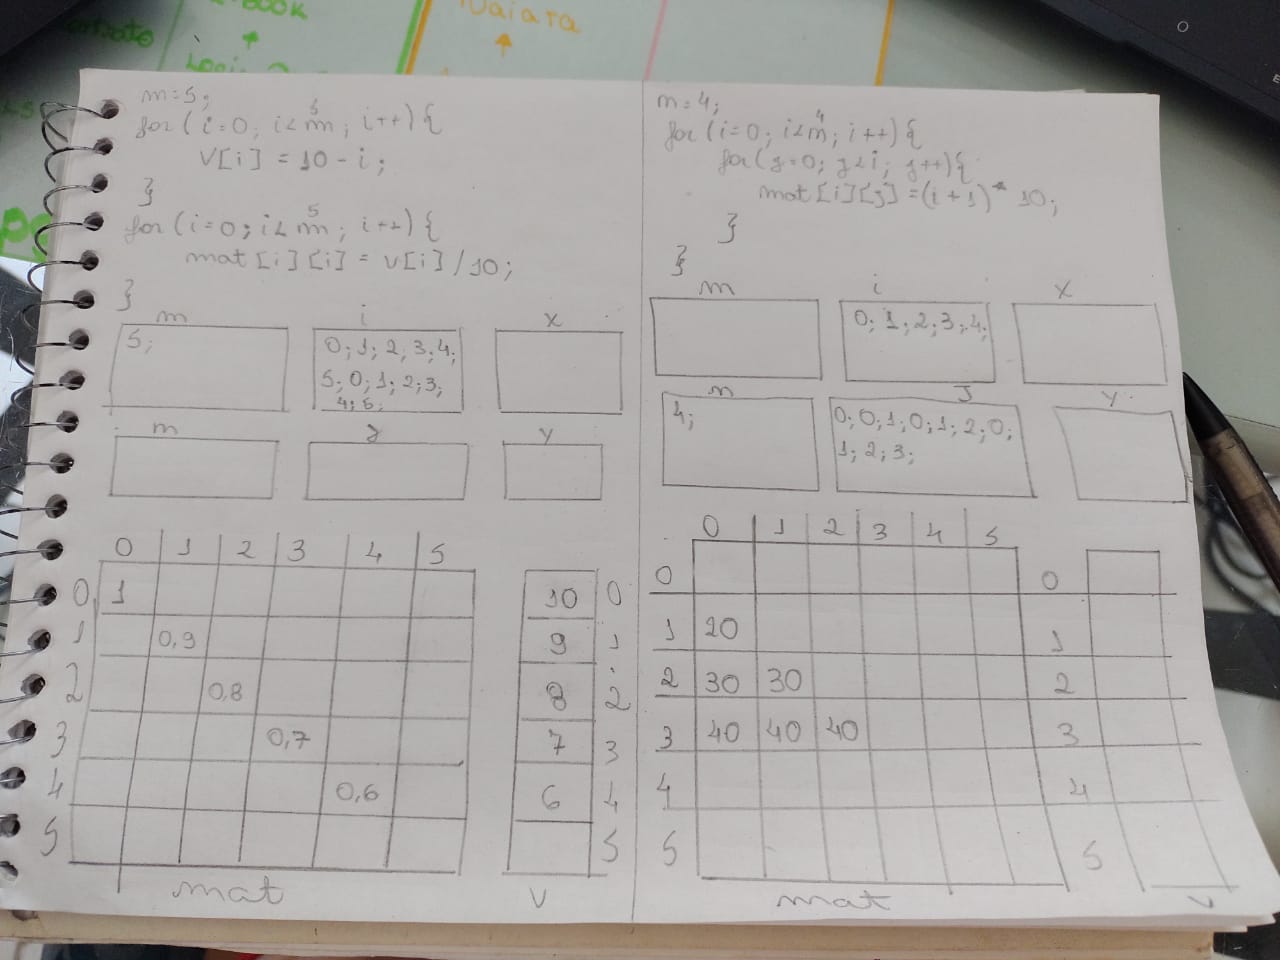 BOOK
Naiara
m=5;
5
for(i=0; i<m; i++){
v[i] = 10-i;
}
5
for(i=0; i<m; i++){
mat[i][i] = v[i]/10;
}
m
i
x
5;
0; 1; 2; 3; 4;
5; 0; 1; 2; 3;
4; 5;
m
j
y
0 1 2 3 4 5
0 1
1 0,9
2 0,8
3 0,7
4 0,6
5
mat
10 0
9 1
8 2
7 3
6 4
5
v
n=4;
4
for(i=0; i<n; i++){
for(j=0; j<i; j++){
mat[i][j]=(i+1)*10;
}
}
m
i
x
0; 1; 2; 3; 4;
n
J
y
4;
0; 0; 1; 0; 1; 2; 0;
1; 2; 3;
0 1 2 3 4 5
0
1 20
2 30 30
3 40 40 40
4
5
mat
0
1
2
3
4
5
v